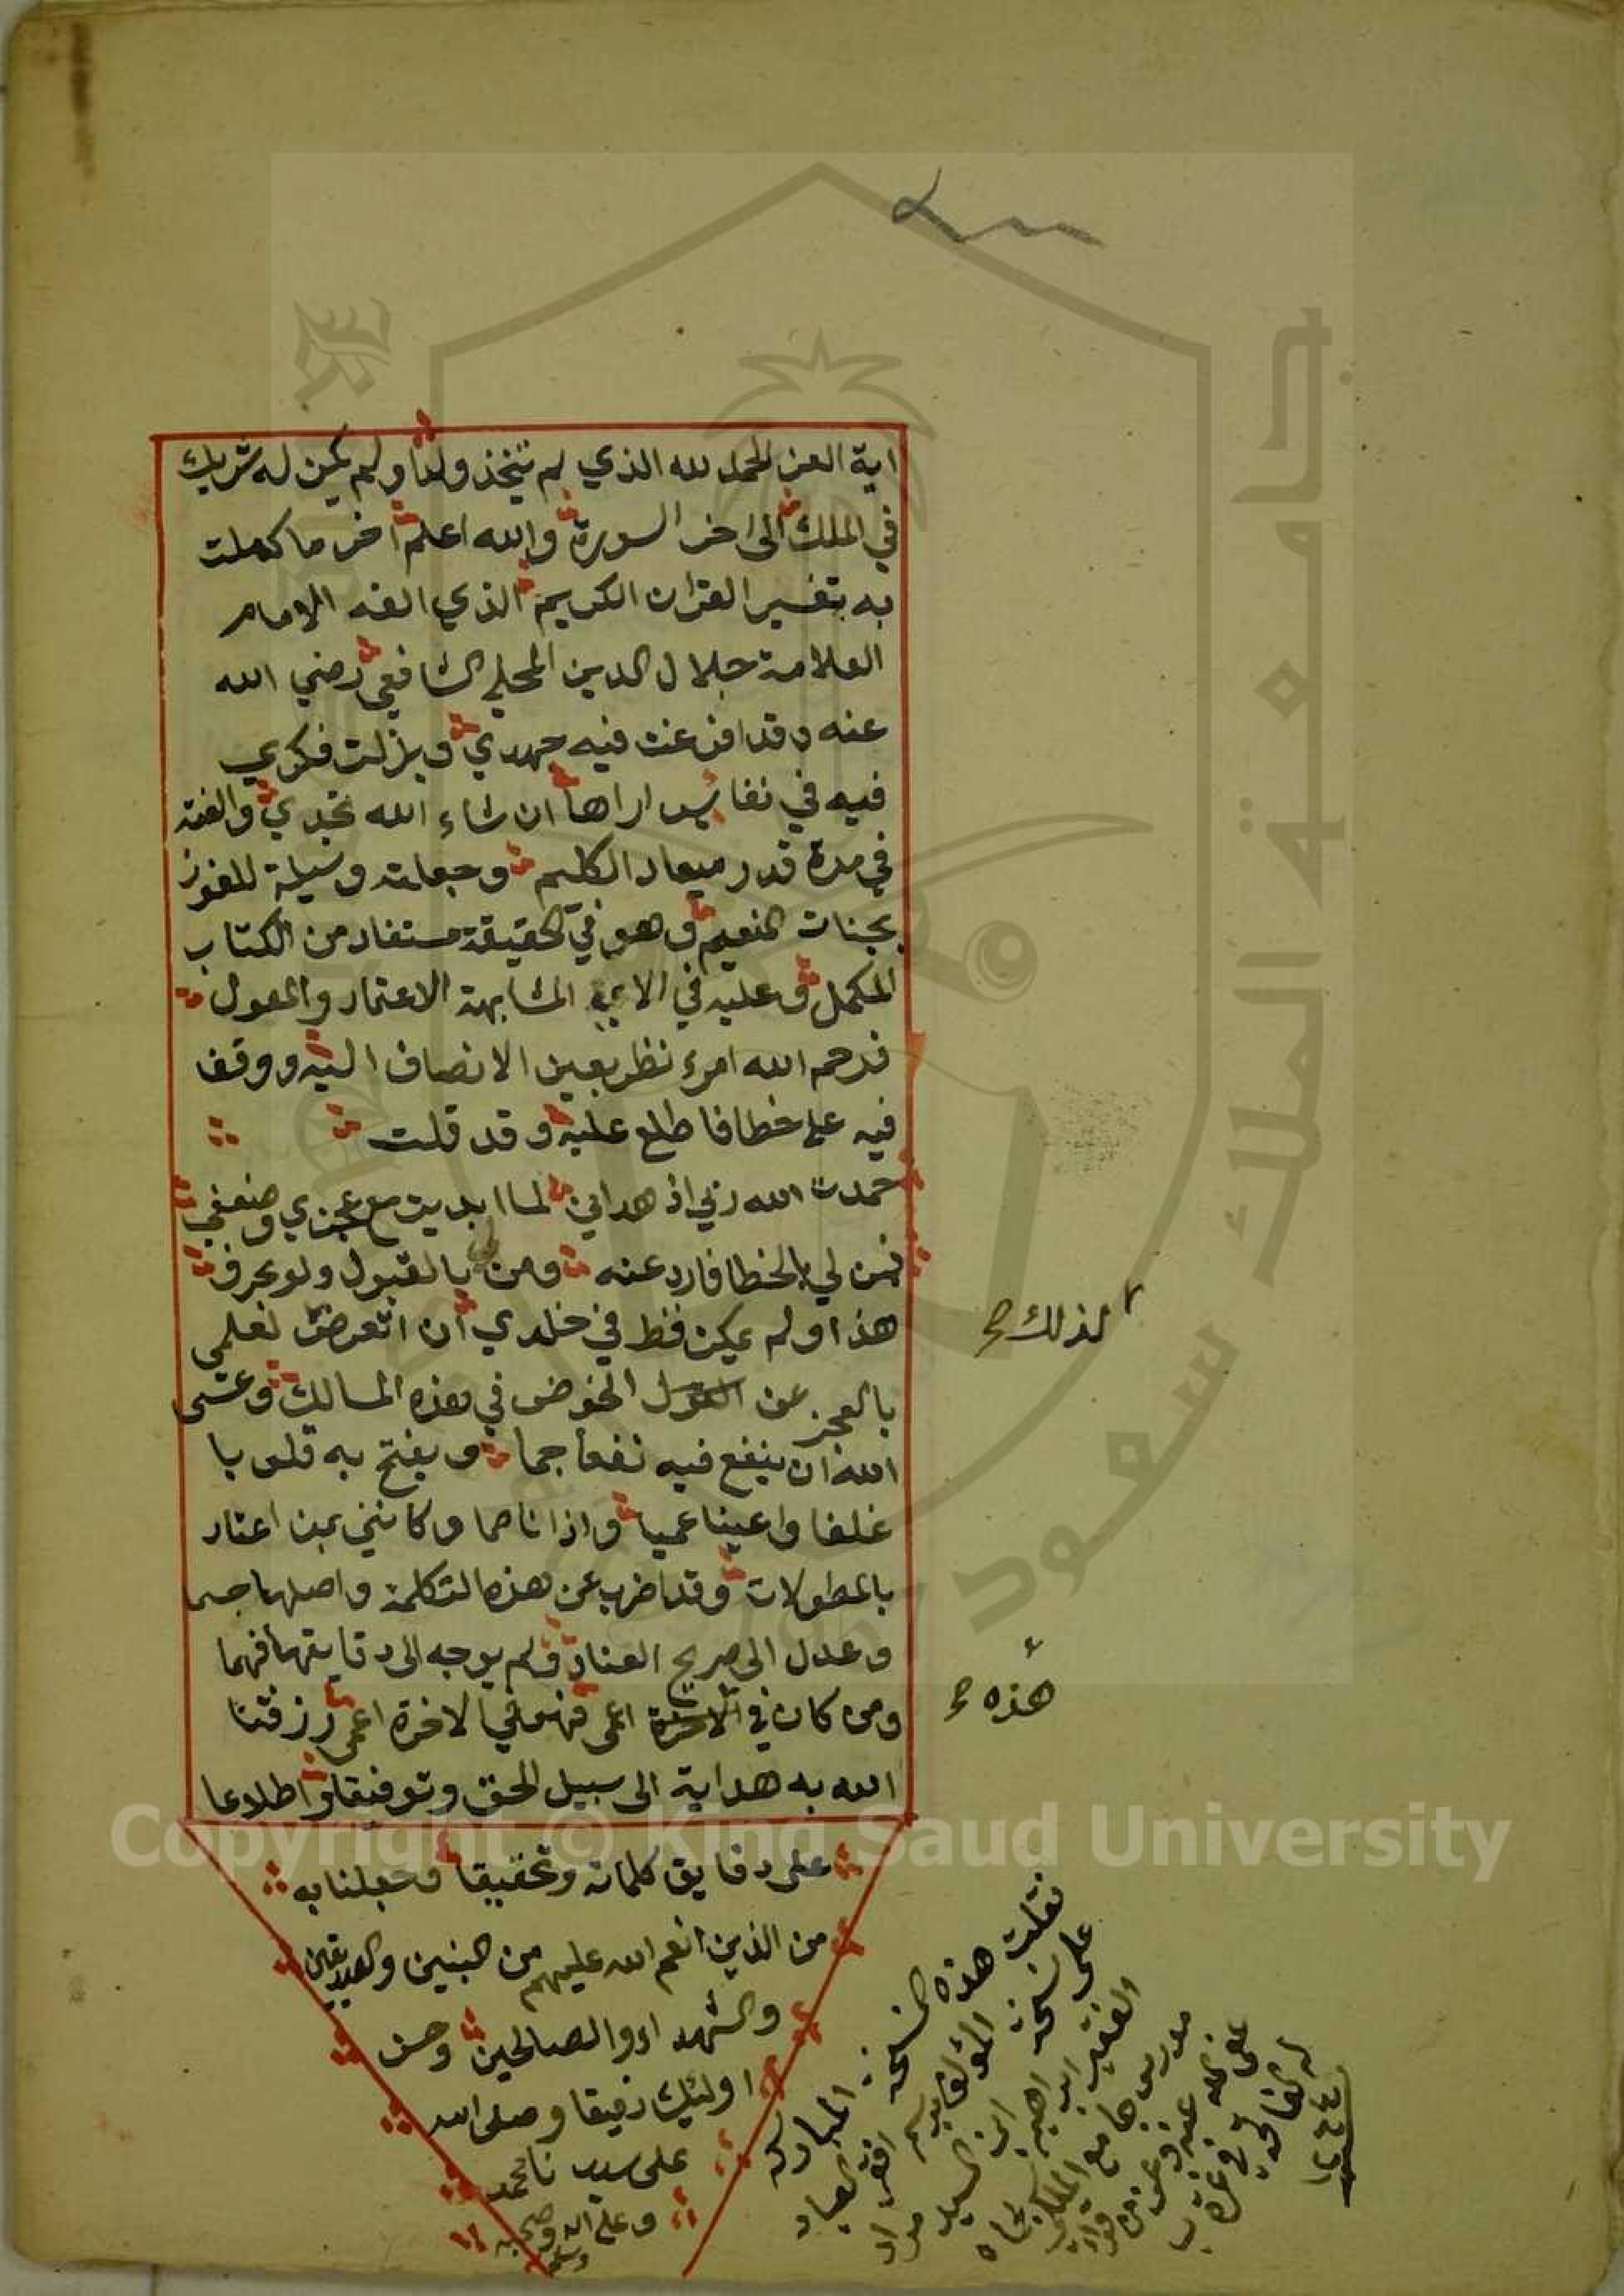 اية العز الحمد لله الذي لم يتخذ ولدا ولم يكن له شريك
في الملك الى اخر السورة والله اعلم اخر ما كملت
به تفسير القران الكريم الذي الفه الامام
العلامة جلال الدين المحلي الشافعي رضي الله
عنه وقد افرغت فيه جهدي وبذلت فكري
فيه في نفايس اراها ان شاء الله تجدي والفته
في مدة قدر ميعاد الكليم وجعلته وسيلة للفوز
بجنات النعيم وهو في الحقيقة مستفاد من الكتاب
المكمل وعليه في الاي المشابهة الاعتماد والمعول
فرحم الله امرء نظر بعين الانصاف اليه ووقف
فيه على خطا فاطلع عليه وقد قلت
حمدت الله ربي اذ هداني لما ابديت مع عجزي وضعفي
فمن لي بالخطا فارد عنه ومن لي بالقبول ولو بحرف
هذا ولم يكن قط في خلدي ان اتعرض لعلمي
لذلك صح
بالعجز عن الخوض في هذه المسالك وعسى
الله ان ينفع فيه نفعا جما ويفتح به قلوبا
غلفا واعينا عميا واذانا صما وكانني بمن اعتاد
بالمطولات وقد اضرب عن هذه التكلمة واصلها حسما
وعدل الى صريح العناد ولم يوجه الى دقايقها فهما
ومن كان في الاخرة اعمى فهو في الاخرة اعمى رزقنا
هذه صح
الله به هداية الى سبيل الحق وتوفيقا واطلاعا
على دقايق كلماته وتحقيقا وجعلنا به
من الذين انعم الله عليهم من النبين والصديقين
والشهداء والصالحين وحسن
اولئك رفيقا وصلى الله
على سيدنا محمد
وعلى اله وصحبه
وسلم
نقلت هذه النسخة المباركة
على نسخة المؤلف بيد افقر العباد
الفقير ابراهيم ابن السيد مراد
مدرس جامع
عفى الله عنه
له الفاتحة في غرة
Copyright © King Saud University
جامعة الملك سعود